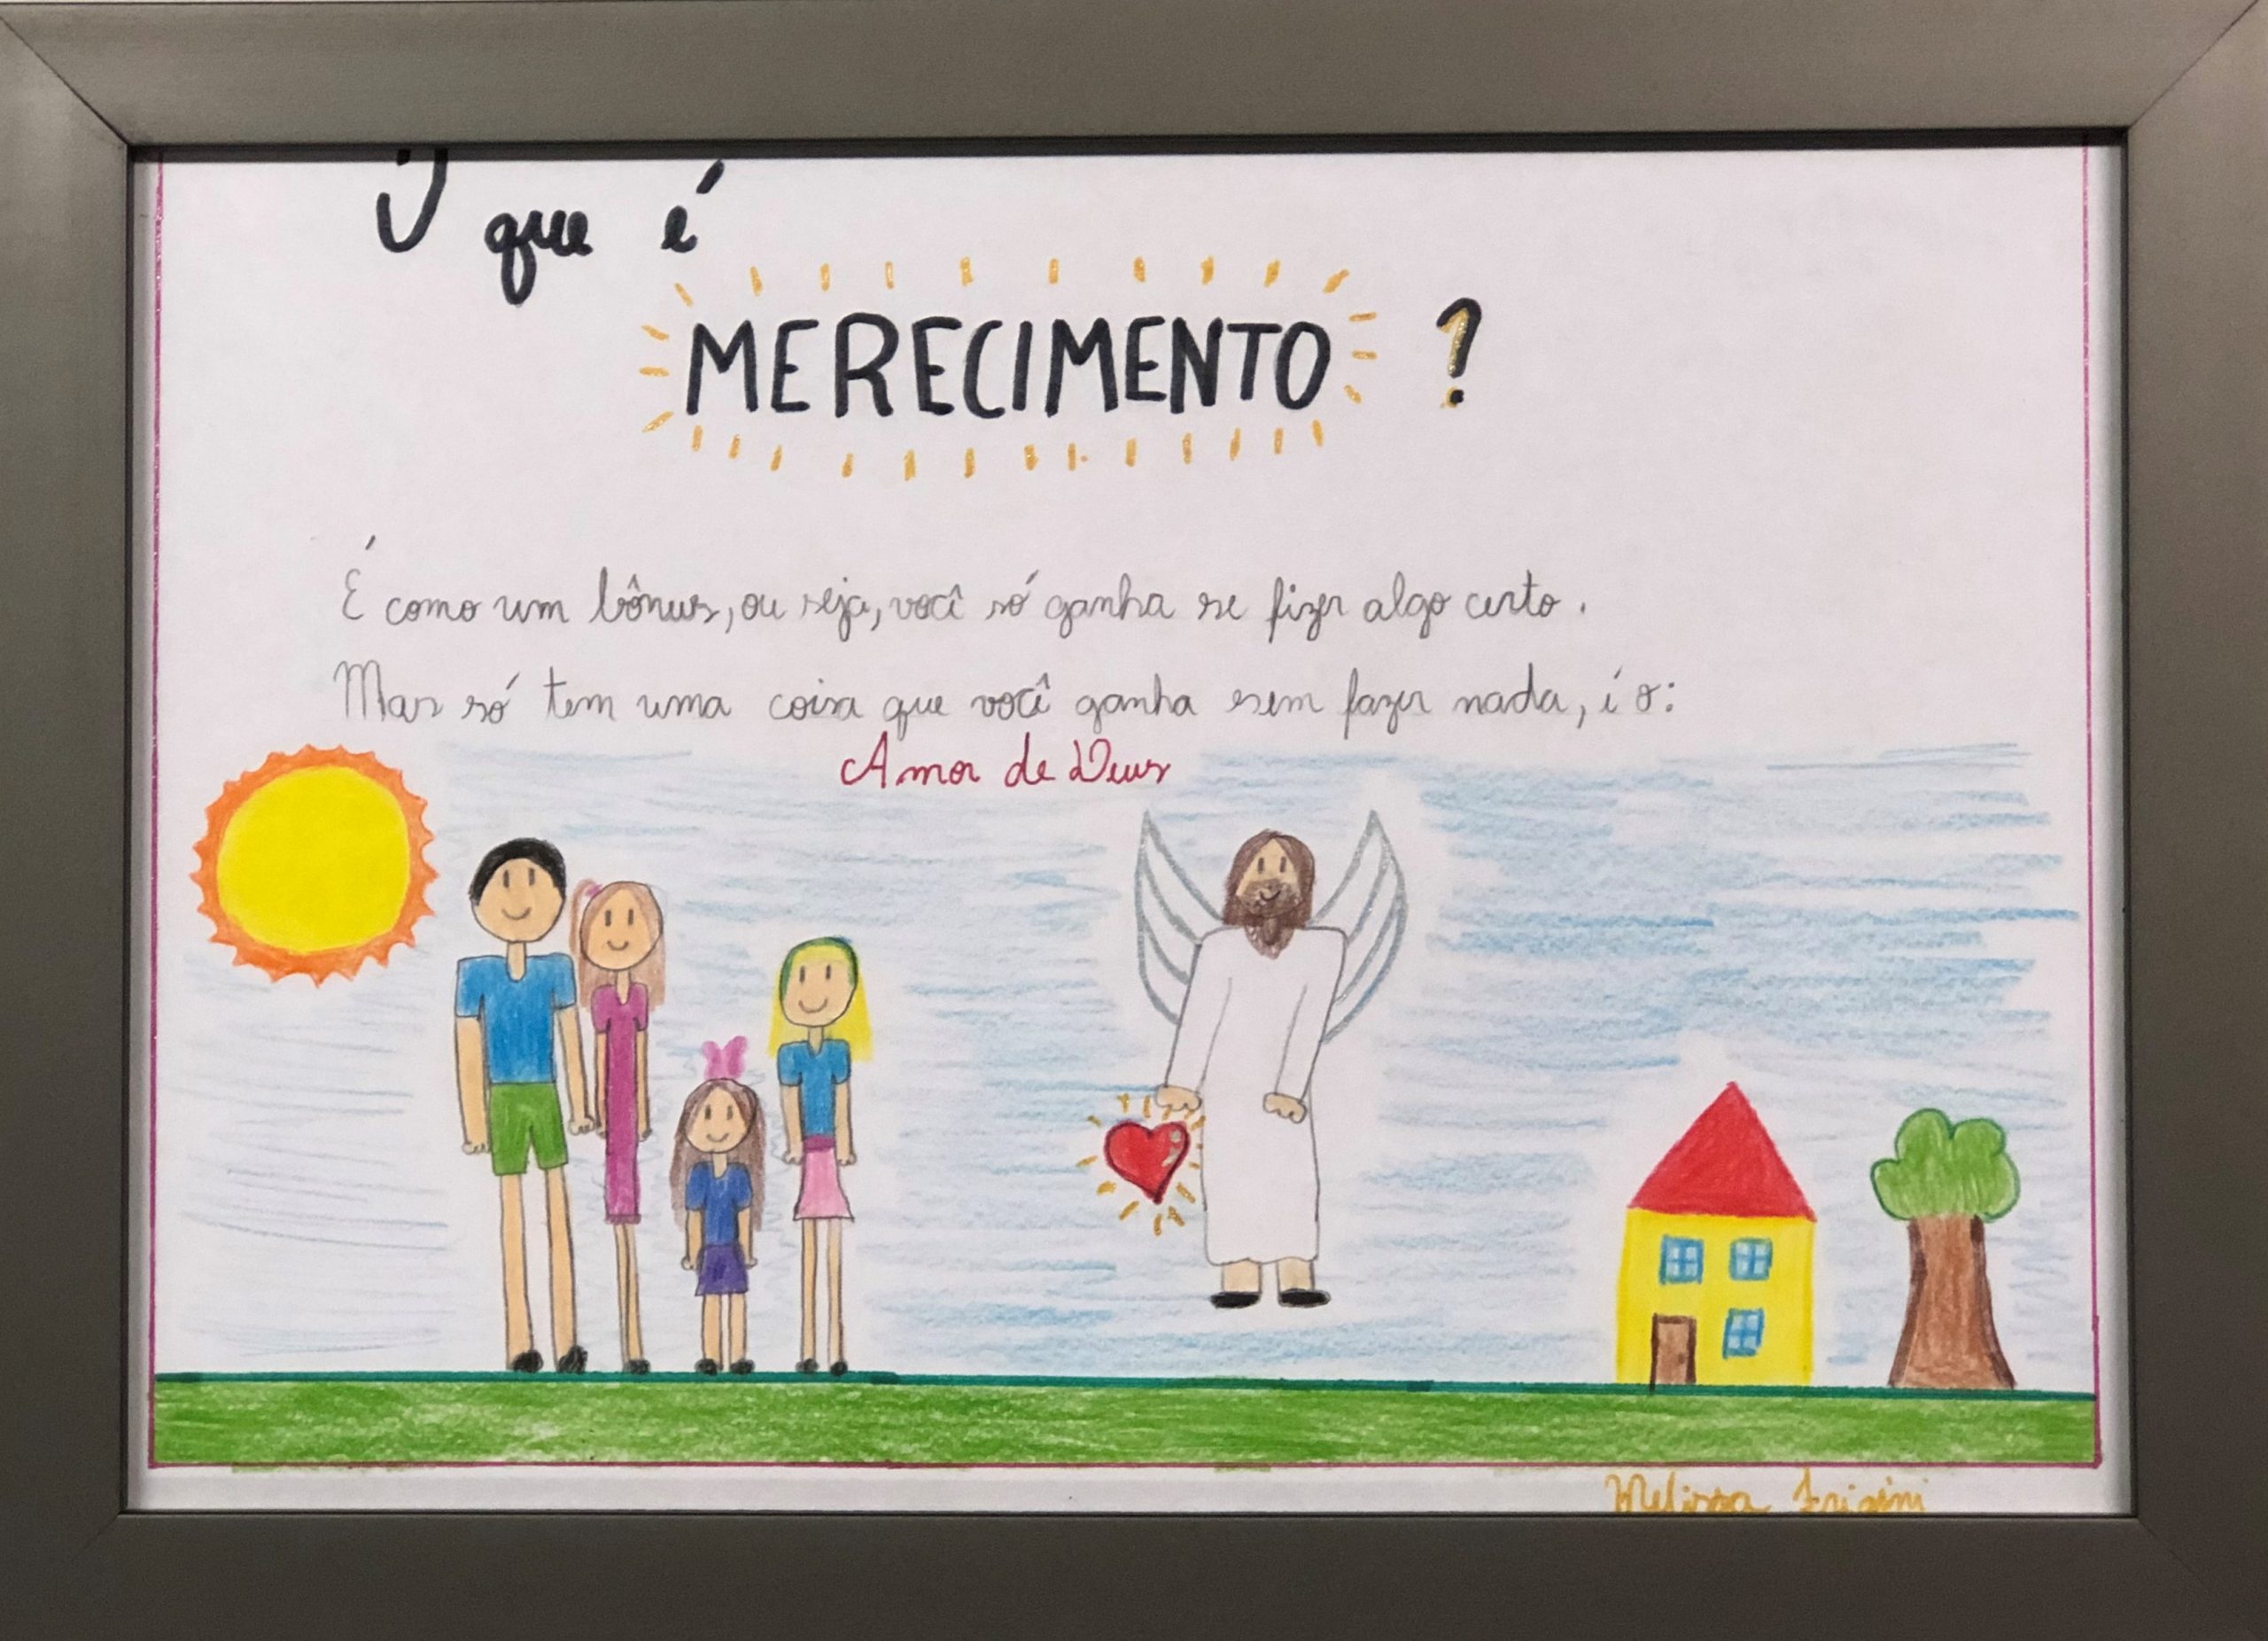 que é
MERECIMENTO ?
É como um bônus, ou seja, você só ganha se fizer algo certo.
Mas só tem uma coisa que você ganha sem fazer nada, é o:
Amor de Deus
Melissa